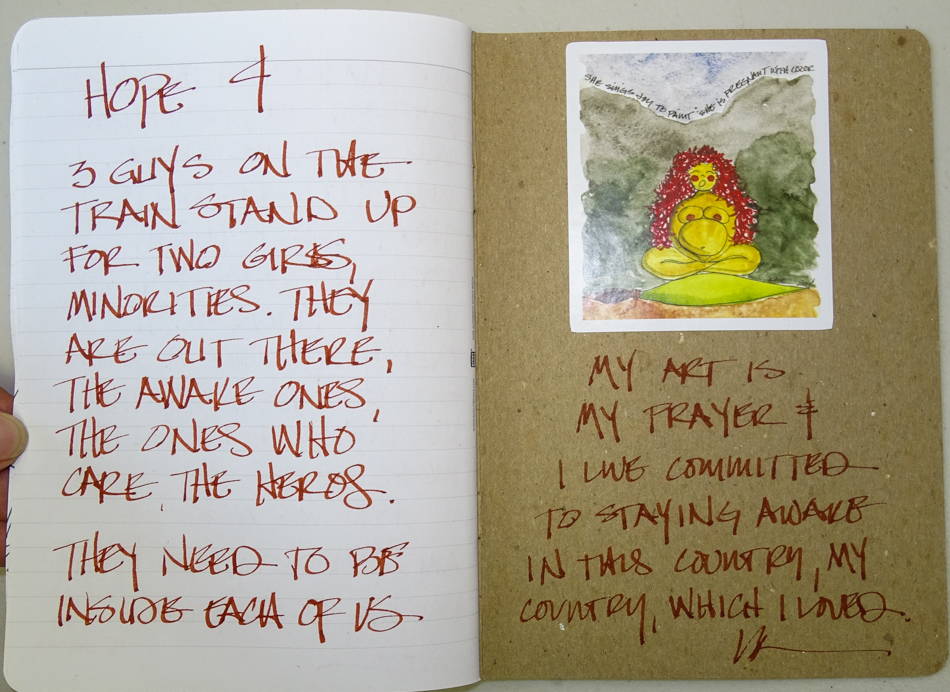 HOPE 4
3 GUYS ON THE
TRAIN STAND UP
FOR TWO GIRLS,
MINORITIES. THEY
ARE OUT THERE,
THE AWAKE ONES,
THE ONES WHO
CARE, THE HEROS.
THEY NEED TO BE
INSIDE EACH OF US
SHE SINGS JOY TO PAINT SHE IS PREGNANT WITH COLOR
MY ART IS
MY PRAYER &
I LIVE COMMITTED
TO STAYING AWAKE
IN THIS COUNTRY, MY
COUNTRY, WHICH I LOVED.